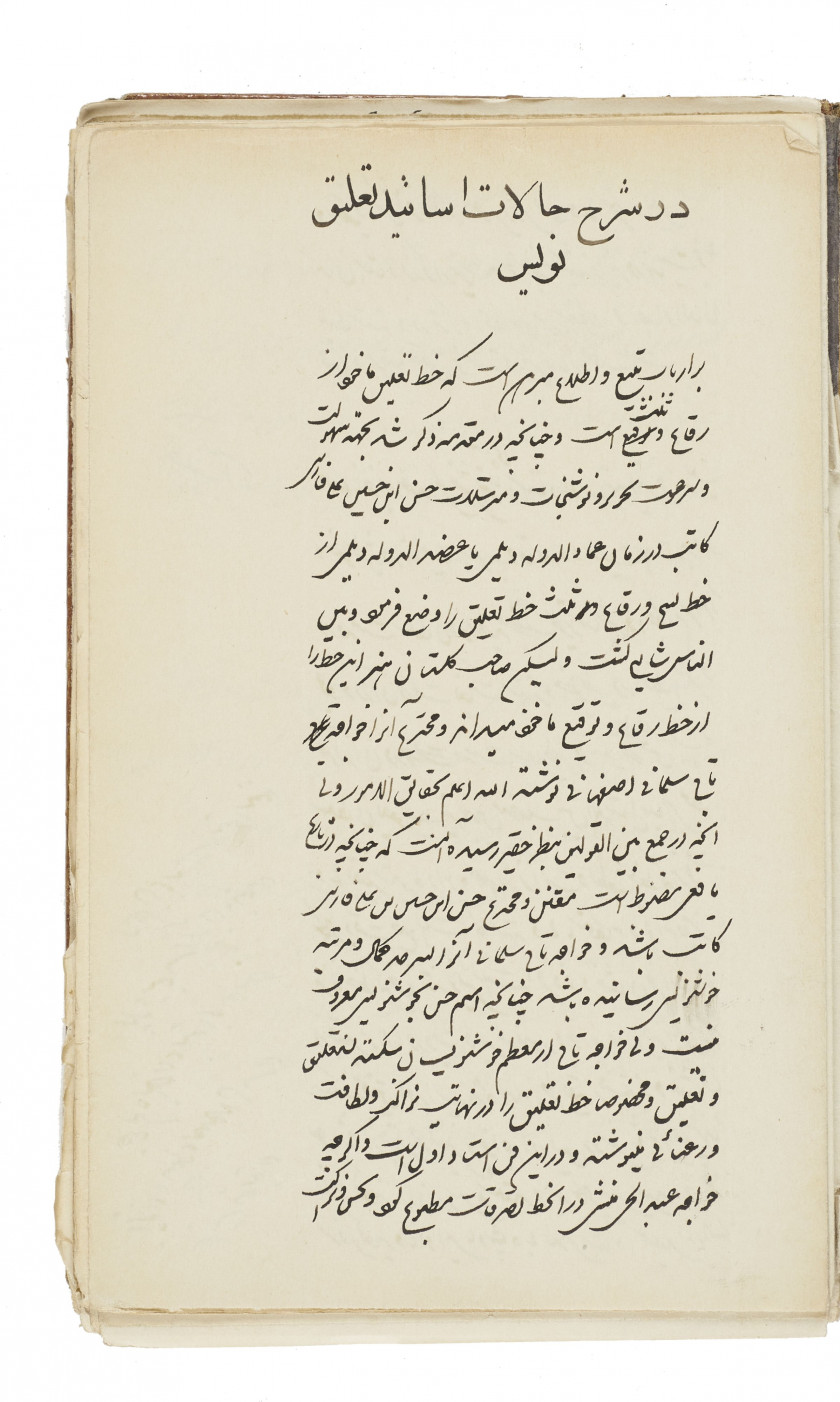 در شرح حالات اساتید تعلیق
نویس
بر ارباب تتبع و اطلاع مبرهن است که خط تعلیق ماخوذ از
ثلث
رقاع و توقیع است و چنانچه در مقدمه ذکر شد بجهة سهولت
و سرعت تحریر نوشتجات و مرسلات حسن ابن حسین علی فارسی
کاتب در زمان عماد الدوله دیلمی یا عضد الدوله دیلمی از
خط نسخ و رقاع و ثلث خط تعلیق را وضع فرمود و بین
الناس شایع گشت و لیکن صاحب گلستان هنر این خط را
از خط رقاع و توقیع ماخوذ میداند و مخترع آنرا خواجه
تاج سلمانی اصفهانی نوشته الله اعلم بحقایق الامور ولی
آنچه در جمع بین القولین بنظر حقیر رسیده آنست که چنانچه در تاریخ
یافعی مضبوط است مقنن و مخترع حسن ابن حسین علی فارسی
کاتب باشد و خواجه تاج سلمانی آنرا بسرحد کمال و مرتبه
خوشنویسی رسانیده باشد چنانچه اسم حسن بخوشنویسی معروف
نیست ولی خواجه تاج از معظم خوشنویسان شکسته نستعلیق
و تعلیق و مخصوصا خط تعلیق را در نهایت نزاکت و لطافت
و رعنائی مینوشته و در این فن استاد اول است و اگرچه
خواجه عبد الحی منشی در انخط تصرفات مطبوع کرد و